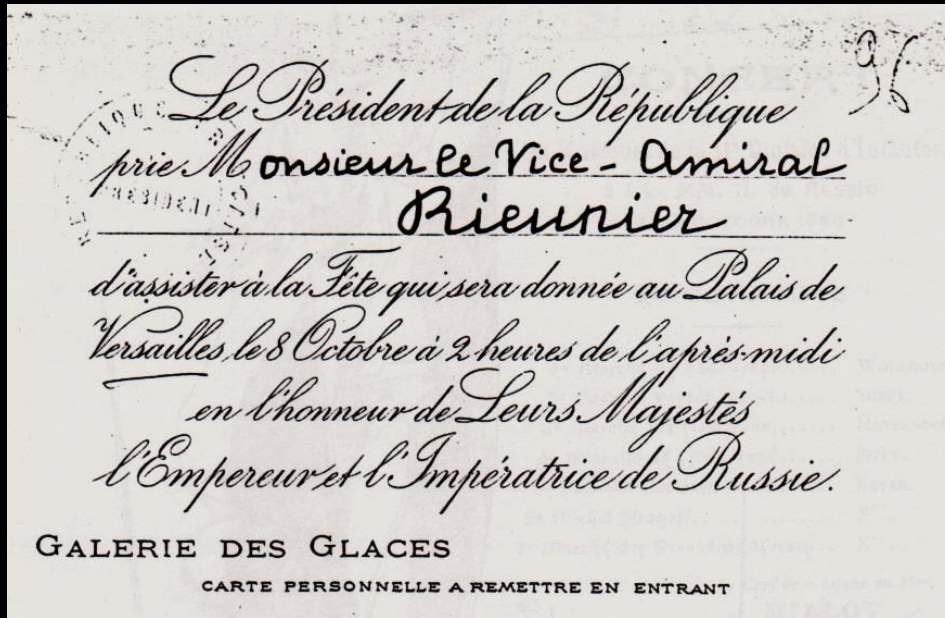 96
Le Président de la République
prie Monsieur le Vice-Amiral
Rieunier
d'assister à la Fête qui sera donnée au Palais de
Versailles, le 8 Octobre à 2 heures de l'après-midi
en l'honneur de Leurs Majestés
l'Empereur et l'Impératrice de Russie.
GALERIE DES GLACES
CARTE PERSONNELLE A REMETTRE EN ENTRANT